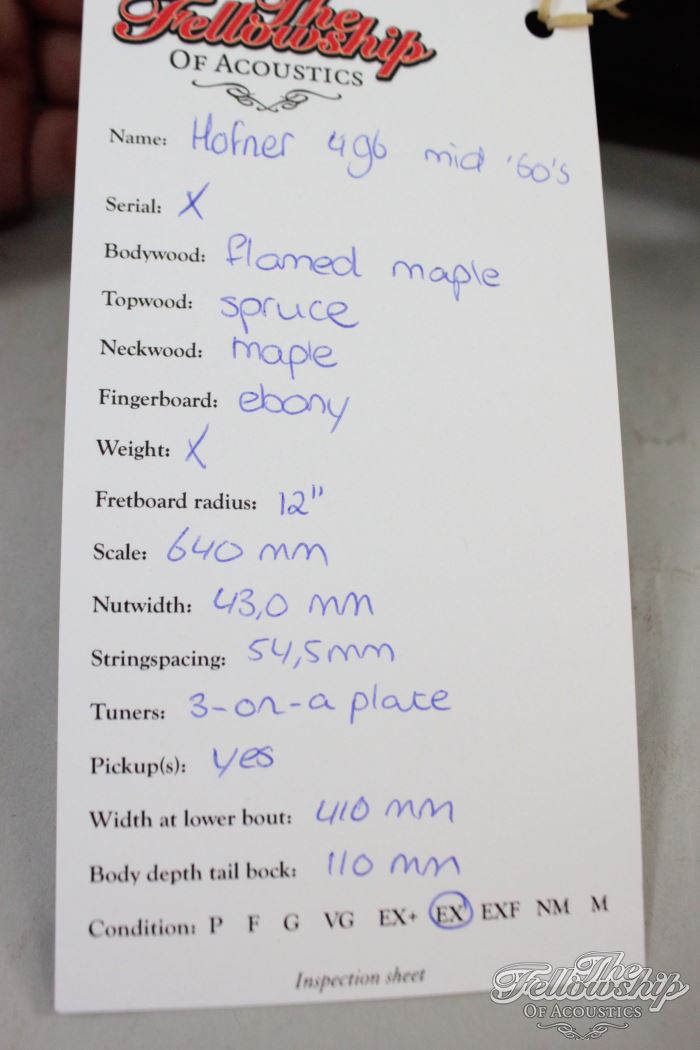 The
Fellowship
OF ACOUSTICS
Name: Hofner 496 mid '60's
Serial: X
Bodywood: flamed maple
Topwood: spruce
Neckwood: maple
Fingerboard: ebony
Weight: X
Fretboard radius: 12"
Scale: 640 mm
Nutwidth: 43,0 mm
Stringspacing: 54,5mm
Tuners: 3-on-a place
Pickup(s): yes
Width at lower bout: 410 mm
Body depth tail bock: 110 mm
Condition: P F G VG EX+ EX EXF NM M
Inspection sheet
The
Fellowship
OF ACOUSTICS